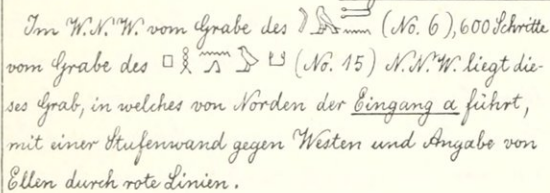 Im W.N.W. vom Grabe des (No. 6), 600 Schritte
vom Grabe des (No. 15) N.N.W. liegt die-
ses Grab, in welches von Norden der Eingang a führt,
mit einer Stufenwand gegen Westen und Angabe von
Ellen durch rote Linien.